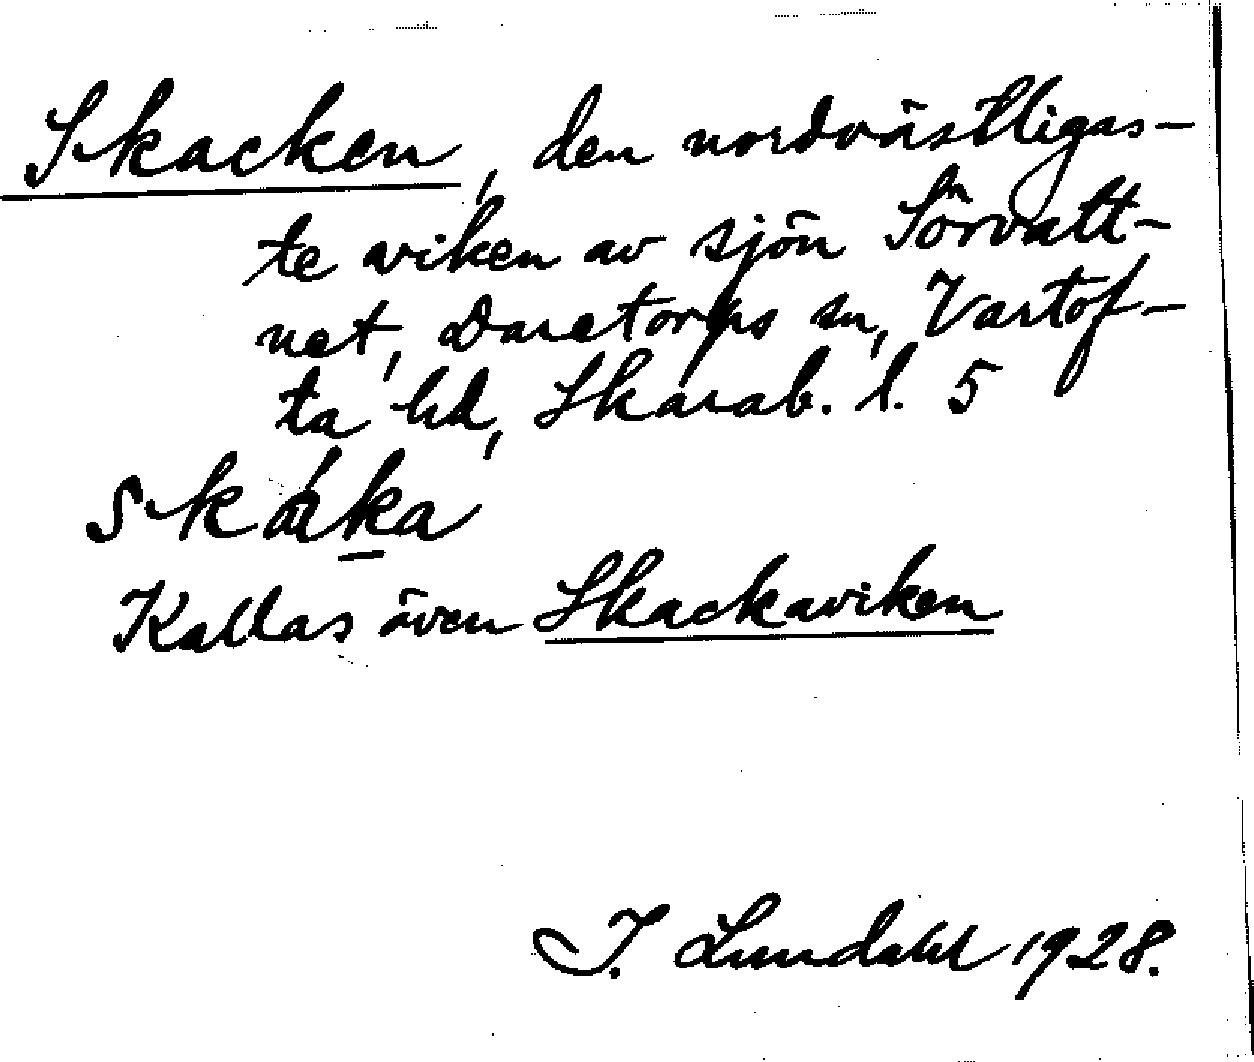 Skacken, den nordvästligas-
te viken av sjön Sörvatt-
net, Daretorps sn, Vartof-
ta hd, Skarab. l. 5
skáka
Kallas även Skackaviken
I. Lundahl 1928.